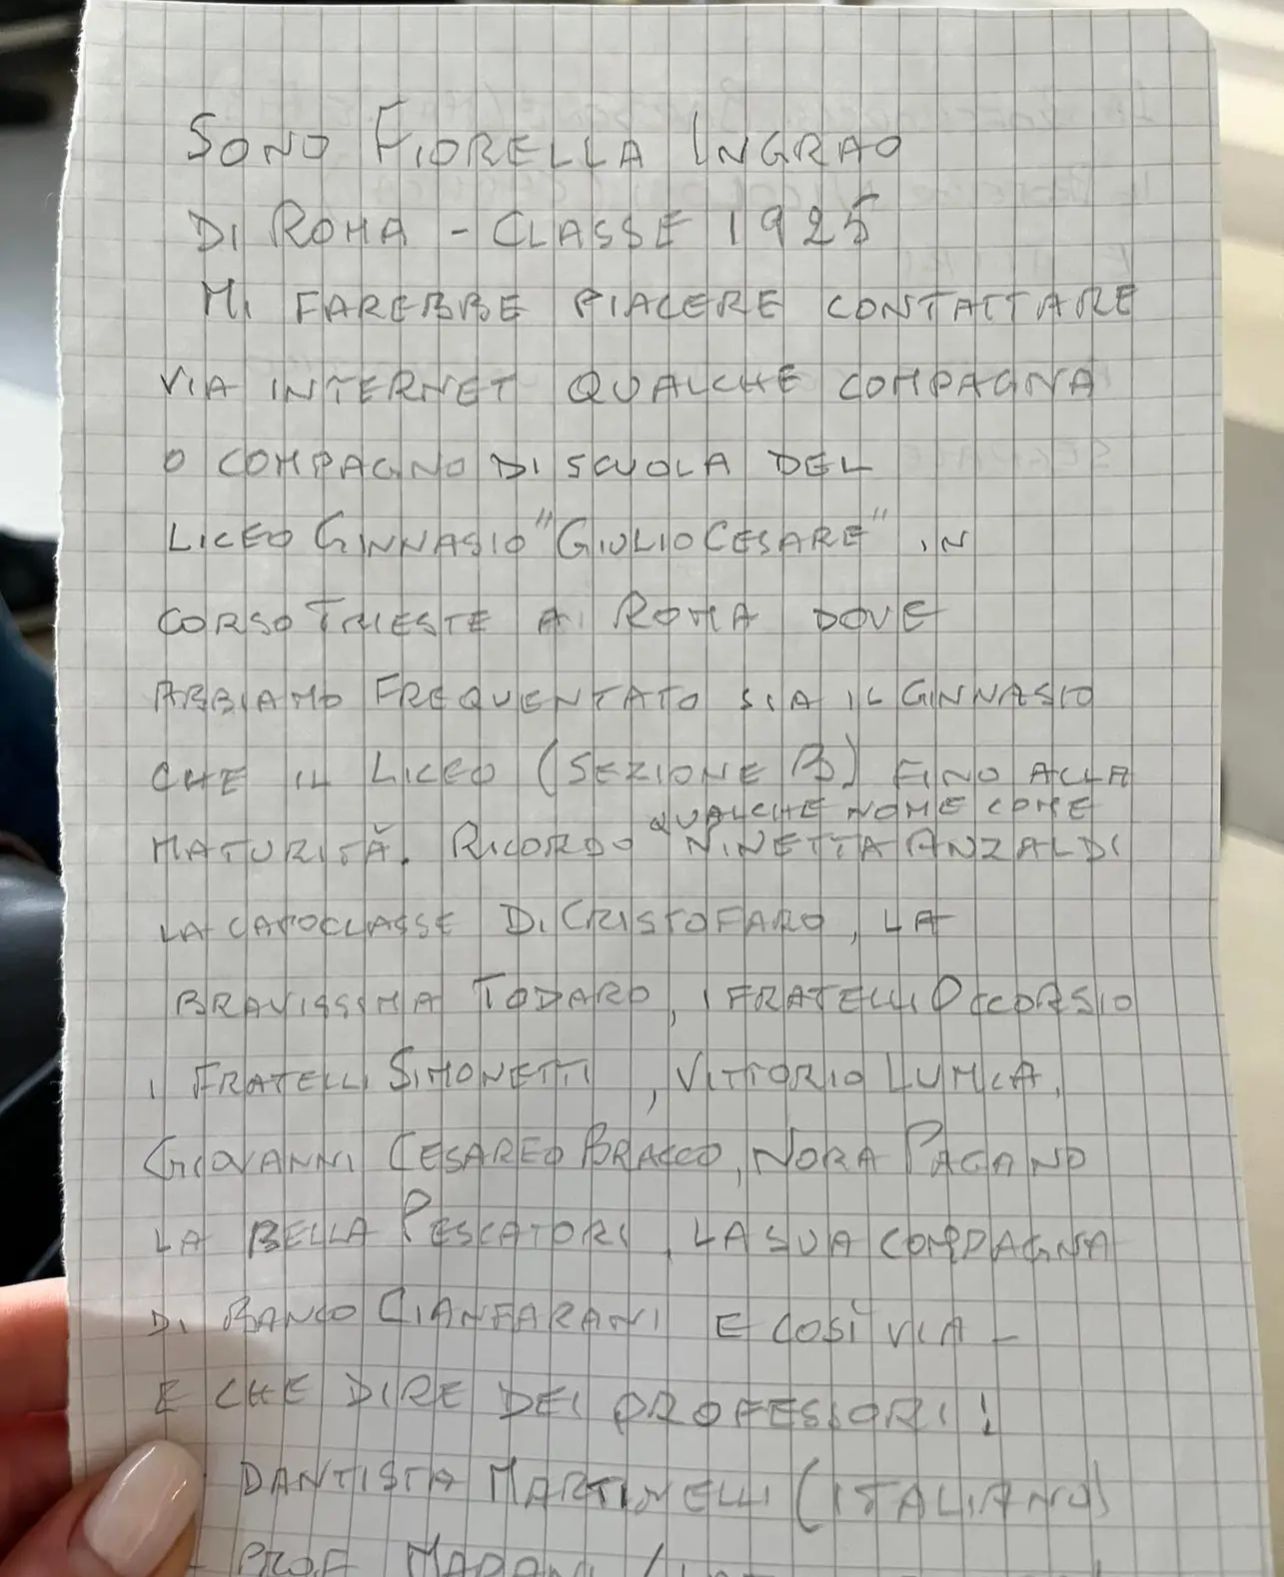 SONO FIORELLA INGRAO
DI ROMA - CLASSE 1925
MI FAREBBE PIACERE CONTATTARE
VIA INTERNET QUALCHE COMPAGNA
O COMPAGNO DI SCUOLA DEL
LICEO GINNASIO "GIULIO CESARE" IN
CORSO TRIESTE A ROMA DOVE
ABBIAMO FREQUENTATO SIA IL GINNASIO
CHE IL LICEO (SEZIONE B) FINO ALLA
QUALCHE NOME COME
MATURITÀ. RICORDO NINETTA ANZALDI
LA CAPOCLASSE DI CRISTOFARO, LA
BRAVISSIMA TODARO, I FRATELLI OCCORSIO
I FRATELLI SIMONETTI, VITTORIO LUMIA,
GIOVANNI CESAREO BRACCO, NORA PAGANO
LA BELLA PESCATORI, LA SUA COMPAGNA
DI BANCO CIANFARANI E COSÌ VIA -
E CHE DIRE DEI PROFESSORI!
DANTISTA MARTINELLI (ITALIANO)
- PROF.